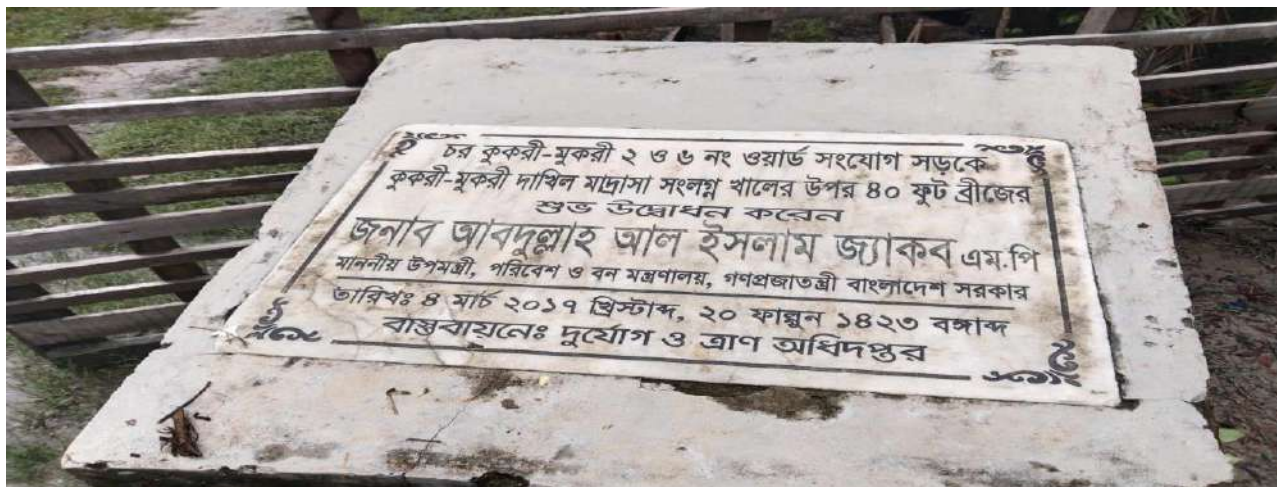 চর কুকরী-মুকরী ২ ও ৬ নং ওয়ার্ড সংযোগ সড়কে
কুকরী-মুকরী দাখিল মাদ্রাসা সংলগ্ন খালের উপর ৪০ ফুট ব্রীজের
শুভ উদ্বোধন করেন
জনাব আবদুল্লাহ আল ইসলাম জ্যাকব এম.পি
মাননীয় উপমন্ত্রী, পরিবেশ ও বন মন্ত্রণালয়, গণপ্রজাতন্ত্রী বাংলাদেশ সরকার
তারিখঃ ৪ মার্চ ২০১৭ খ্রিস্টাব্দ, ২০ ফাল্গুন ১৪২৩ বঙ্গাব্দ
বাস্তবায়নেঃ দুর্যোগ ও ত্রাণ অধিদপ্তর